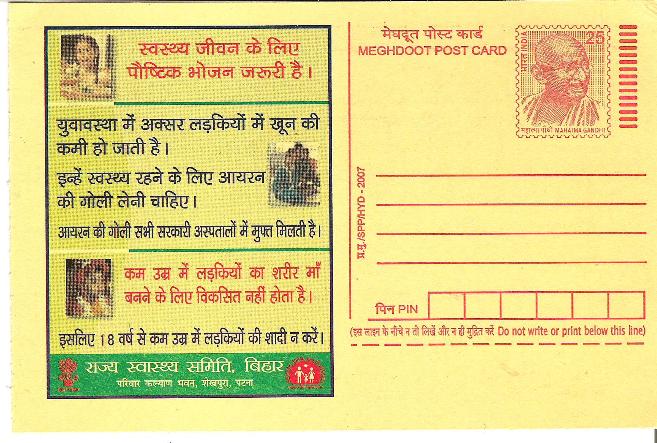 स्वस्थ्य जीवन के लिए
पौष्टिक भोजन जरूरी है।
युवावस्था में अक्सर लड़कियों में खून की
कमी हो जाती है।
इन्हें स्वस्थ्य रहने के लिए आयरन
की गोली लेनी चाहिए।
आयरन की गोली सभी सरकारी अस्पतालों में मुफ्त मिलती है।
कम उम्र में लड़कियों का शरीर माँ
बनने के लिए विकसित नहीं होता है।
इसलिए 18 वर्ष से कम उम्र में लड़कियों की शादी न करें।
राज्य स्वास्थ्य समिति, बिहार
परिवार कल्याण भवन, शेखपुरा, पटना
मेघदूत पोस्ट कार्ड
MEGHDOOT POST CARD
भारत INDIA
25
महात्मा गांधी MAHATMA GANDHI
प्र.मु./SPP/HYD - 2007
पिन PIN
(इस लाइन के नीचे न तो लिखें और न ही मुद्रित करें Do not write or print below this line)